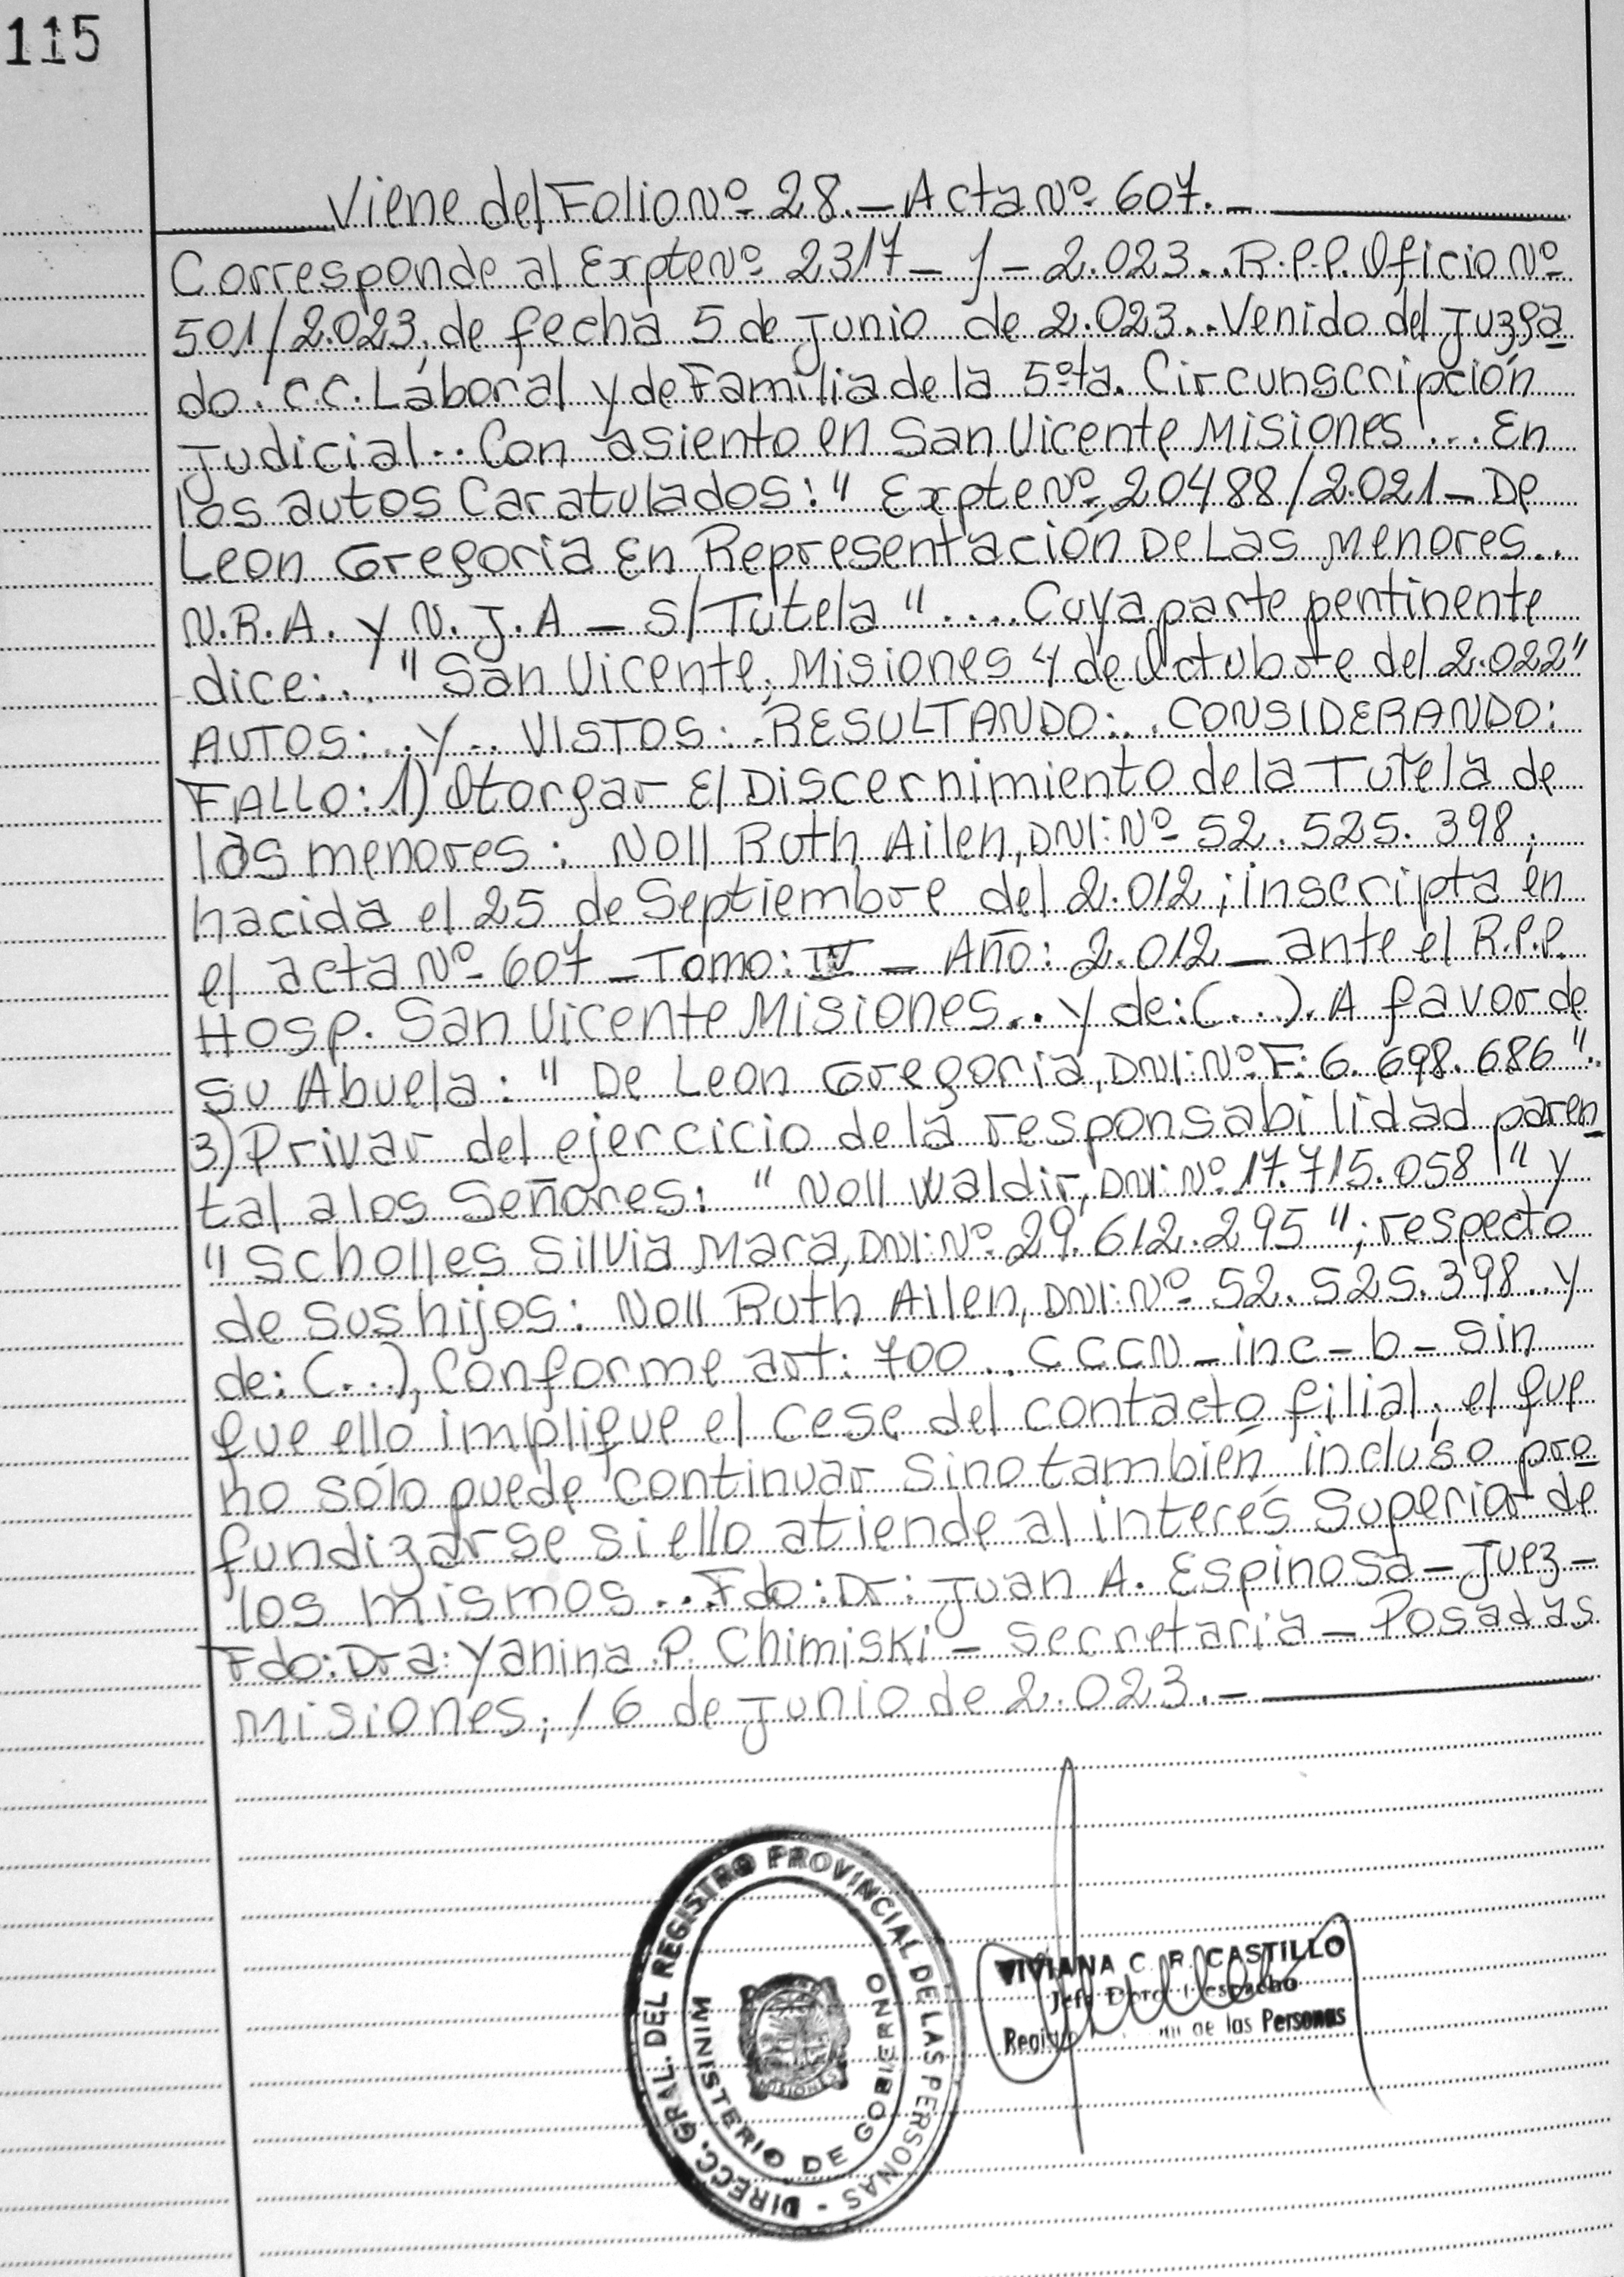 115
Viene del Folio Nº 28.- Acta Nº 607.-
Corresponde al Expte Nº 2317 - J - 2.023.. R.P.P. Oficio Nº
501/2.023, de fecha 5 de Junio de 2.023.. Venido del Juzga
do. C.C. Laboral y de Familia de la 5ºta. Circunscripción
Judicial.. Con asiento en San Vicente Misiones ... En
los autos Caratulados: " Expte Nº 20488/2.021 - De
Leon Gregoria En Representación De Las menores..
N.R.A. y N.J.A - S/Tutela ".... Cuya parte pentinente
dice:.. " San Vicente, Misiones 4 de Octubre del 2.022"
AUTOS:.. Y.. VISTOS: .RESULTANDO:.. CONSIDERANDO:
FALLO: 1) Otorgar El Discernimiento de la Tutela de
las menores: Noll Ruth Ailen, DNI: Nº 52.525.398;
nacida el 25 de Septiembre del 2.012; inscripta en
el acta Nº 607 - Tomo: IV - Año: 2.012 - ante el R.P.P.
Hosp. San Vicente Misiones.. y de: (...). A favor de
su Abuela: " De Leon Gregoria, DNI: Nº F: 6.698.686 ".
3) Privar del ejercicio de la responsabilidad paren
tal a los Señores: " Noll Waldir, DNI: Nº 17.715.058 " y
" Scholles Silvia Mara, DNI: Nº 29.612.295 "; respecto
de Sus hijos: Noll Ruth Ailen, DNI: Nº 52.525.398.. y
de: (...), Conforme art: 700.. CCCN - inc - b - Sin
que ello implique el cese del contacto filial, el que
no sólo puede continuar Sino también incluso pro
fundizarse si ello atiende al interés Superior de
los mismos... Fdo: Dr: Juan A. Espinosa - Juez -
Fdo: Dra: Yanina P. Chimiski - Secretaria - Posadas
Misiones, 16 de Junio de 2.023.-
DIRECC. GRAL. DEL REGISTRO PROVINCIAL DE LAS PERSONAS -
MINISTERIO DE GOBIERNO
MISIONES
VIVIANA C. R. CASTILLO
Jefe Despacho
de las Personas